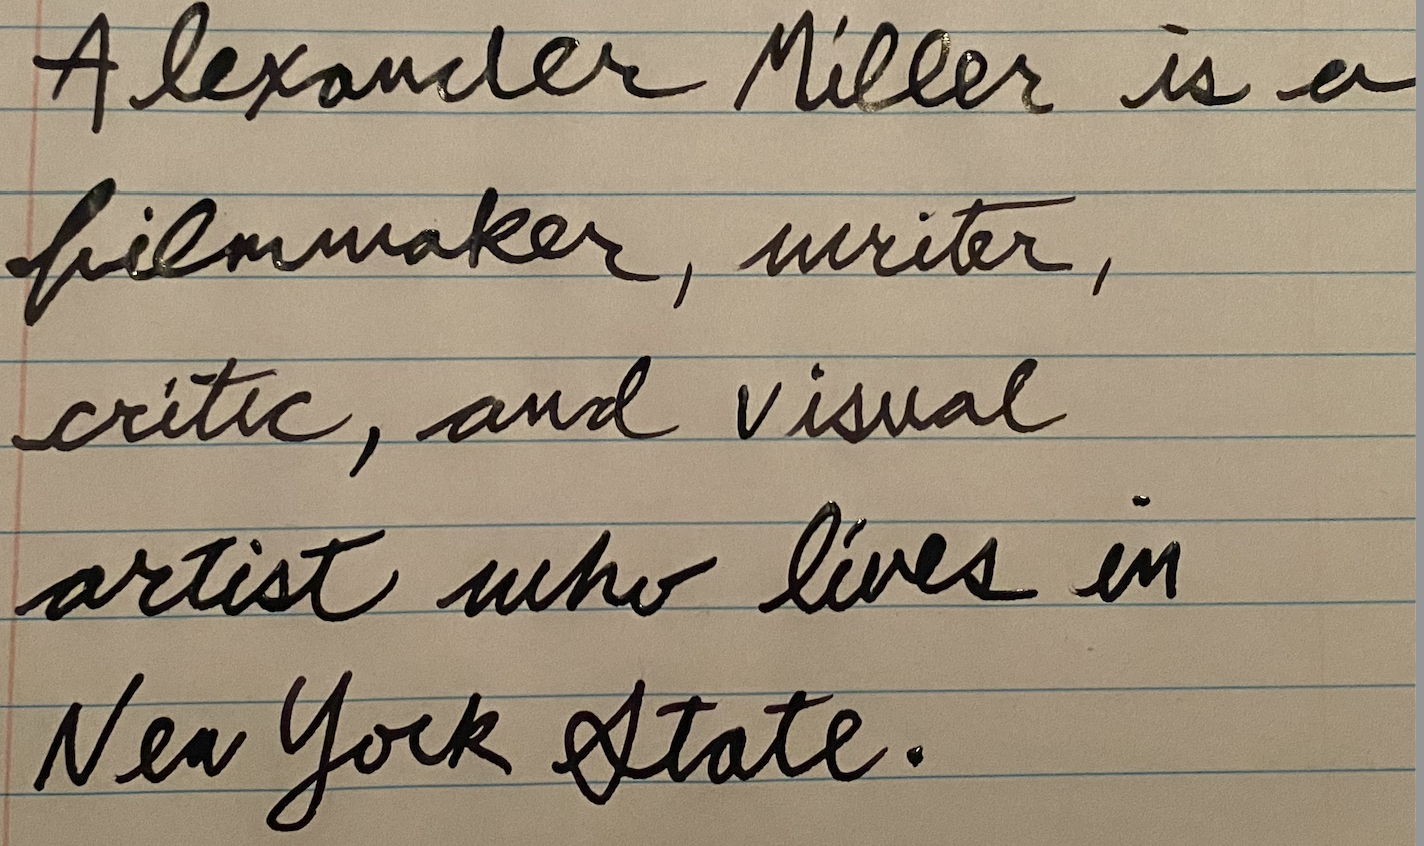 Alexander Miller is a
filmmaker, writer,
critic, and visual
artist who lives in
New York State.